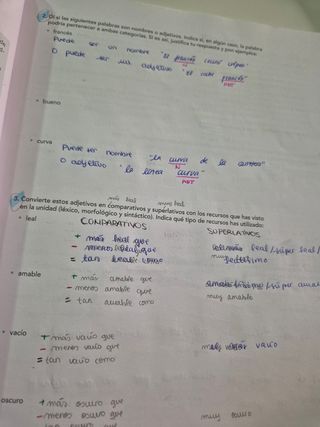 2. Di si las siguientes palabras son nombres o adjetivos. Indica si, en algún caso, la palabra
podría pertenecer a ambas categorías. Si es así, justifica tu respuesta y pon ejemplos:
• francés
Puede ser un nombre "El francés
N
O puede ser un adjetivo "El café francés"
ADJ
• bueno
• curva
Puede ser nombre "La curva de la carretera"
N
O adjetivo "la línea curva"
ADJ
más leal muy leal
3. Convierte estos adjetivos en comparativos y superlativos con los recursos que has visto
en la unidad (léxico, morfológico y sintáctico). Indica qué tipo de recursos has utilizado:
COMPARATIVOS SUPERLATIVOS
• leal
+ más leal que leal/súper leal/
- menos leal que muy lealísimo
= tan leal como
• amable
+ más amable que /súper
- menos amable que muy amable
= tan amable como
• vacío
+ más vacío que
- menos vacío que muy vacío
= tan vacío como
oscuro
+ más oscuro que
- menos oscuro que muy oscuro